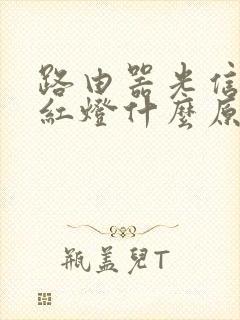 路由器光信
紅燈什麼原
瓶盖兒T